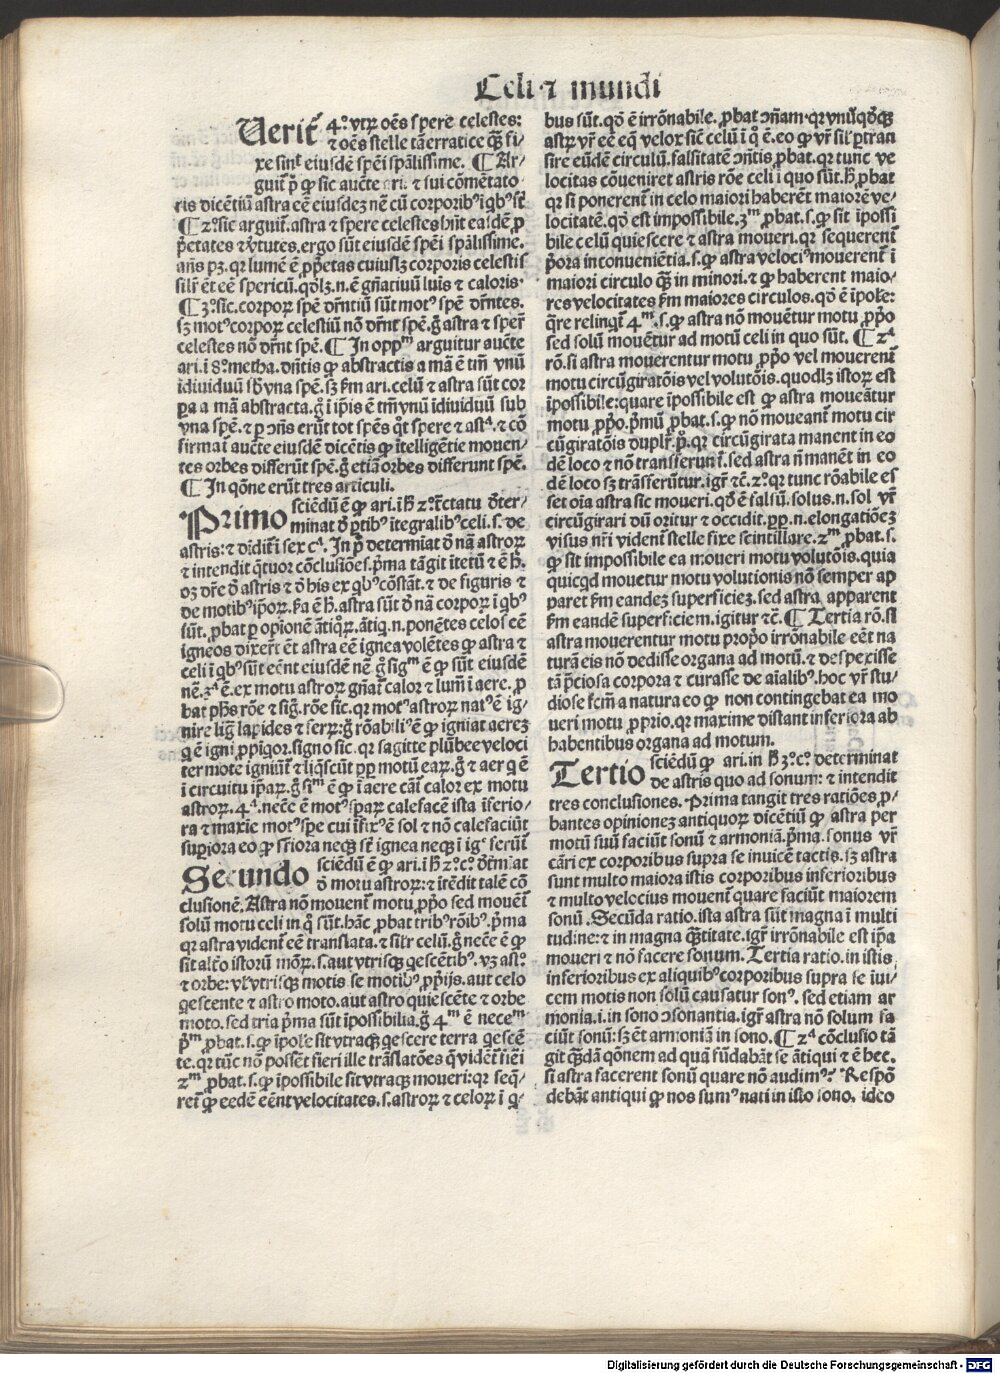 Celi ⁊ mundi
Uerit̃ 4.º vtꝝ oẽs spere celestes:
⁊ oẽs stelle tã erratice q̃ꝫ fi/
xe sint̃ eiusdẽ spẽi spãlissime. ¶ Ar/
guit̃ p̃ ꝙ sic auc̃te ari. ⁊ sui cõmẽtato
ris dicẽtiũ astra eẽ eiusdeꝫ nẽ cũ corporibꝰ ĩ qbꝰ sũt
¶ 2.º sic arguit̃. astra ⁊ spere celestes hñt easdẽ ꝓ
p̃etates ⁊ v̓tutes. ergo sũt eiusdẽ spẽi spãlissime.
añs pꝫ. qꝛ lumẽ ẽ ꝓp̃etas cuiuslꝫ corporis celestis
silr̃ ẽt eẽ spericũ. qõlꝫ. n. ẽ gñatiuũ luis ⁊ caloris.
¶ 3.º sic. corpoꝝ spẽ dr̃ntiũ sũt motꝰ spẽ dr̃ntes.
sꝫ motꝰ corpoꝝ celestiũ nõ dr̃nt spẽ. g̊ astra ⁊ sper̃
celestes nõ dr̃nt spẽ. ¶ In oppᵐ arguitur auc̃te
ari. ĩ 8.º metha. dñtis ꝙ abstractis a mã ẽ tm̃ vnũ
ĩdiuiduũ sb̓ vna spẽ. sꝫ ẜm ari. celũ ⁊ astra sũt cor
pa a mã abstracta. g̊ ĩ ip̃is ẽ tm̃ vnũ ĩdiuiduũ sub
vna spẽ. ⁊ ꝑ ↄñs erũt tot spẽs q̊t spere ⁊ astᵃ. ⁊ cõ
firmat̃ auc̃te eiusdẽ dicẽtis ꝙ ĩtelligẽtie mouen/
tes orbes differũt spẽ. g̊ etiã orbes differunt spẽ.
¶ In qõne erũt tres articuli.
Primo sciẽdũ ẽ ꝙ ari. ĩ h̓ 2.º tr̃ctatu d̓ter/
minat d̓ ꝑtibꝰ ĩtegralibꝰ celi. s. de
astris: ⁊ diuidit̃ ĩ sex cᵃ. In p̃ determiat d̓ nã astroꝝ
⁊ intendit q̃tuor cõclusiões. p̃ma tãgit ĩtẽtũ ⁊ ẽ h̓.
oꝫ dr̃e d̓ astris ⁊ d̓ his ex qbꝰ cõstãt. ⁊ de figuris ⁊
de motibꝰ ip̃oꝝ. s̃a ẽ h̓. astra sũt d̓ nã corpoꝝ ĩ qbꝰ
sũt. ꝓbat ꝑ opiõnẽ ãtiq̃ꝝ. ãtiq. n. ponẽtes celos eẽ
igneos dixer̃t ẽt astra eẽ ignea volẽtes ꝙ astra ⁊
celi ĩ qbꝰ sũt eẽnt eiusdẽ nẽ. g̊ sigᵐ ẽ ꝙ sũt eiusdẽ
nẽ. 3ᵃ ẽ. ex motu astroꝝ gñat̃ calor ⁊ lum̃ ĩ aere. ꝓ
bat ph̓s rõe ⁊ sig̊. rõe sic. qꝛ motꝰ astroꝝ natꝰ ẽ ig/
nire lig̃ lapides ⁊ ferꝝ: g̊ rõabiliꝰ ẽ ꝙ igniat aereꝫ
q ẽ igni ꝓpĩqor. signo sic. qꝛ sagitte plũbee veloci
ter mote igniũt̃ ⁊ liq̃scũt ꝓp̃ motũ eaꝝ. g̊ ⁊ aer q ẽ
ĩ circuitu ip̃aꝝ. g̊ siᵐ ẽ ꝙ ĩ aere cãt̃ calor ex motu
astroꝝ. 4ᵃ. necẽ ẽ motꝰ spaꝝ calefacẽ ista ĩferio/
ra ⁊ maxie motꝰ spe cui ĩfixꝰ ẽ sol ⁊ nõ calefaciũt
suꝑiora eo ꝙ suꝑiora necꝫ sũt ignea necꝫ ĩ igᵉ feruĩt
Secundo sciẽdũ ẽ ꝙ ari. ĩ h̓ 2.º cº. d̓tm̃iat
d̓ motu astroꝝ: ⁊ ĩtẽdit talẽ cõ
clusionẽ. Astra nõ mouent̃ motu ꝓprio sed mouẽt̃
solũ motu celi in q̊ sũt. hãc ꝓbat tribꝰ rõibꝰ. p̃ma
qꝛ astra vident̃ eẽ translata. ⁊ silr̃ celũ. g̊ necẽ ẽ ꝙ
sit altc̃o istorũ moꝝ. s. aut vtrisqꝫ qescẽtibꝰ. vꝫ astº.
⁊ orbe: vl̓ vtrisqꝫ motis se motibꝰ ꝓp̃ijs. aut celo
qescente ⁊ astro moto. aut astro quiescẽte ⁊ orbe
moto. sed tria p̃ma sũt ĩpossibilia. g̊ 4ᵐ ẽ neceᵐ
p̃ᵐ ꝓbat. s. ꝙ ĩpole sit vtraqꝫ qescere terra qescẽ
te. qꝛ tũc nõ possẽt fieri ille trãslatões q̃ vidẽt̃ fieri
2ᵐ ꝓbat. s. ꝙ ĩpossibile sit vtraqꝫ moueri: qꝛ seq̃/
ret̃ ꝙ eedẽ eẽnt velocitates. s. astroꝝ ⁊ celoꝝ ĩ q/
bus sũt. qõ ẽ irrõnabile. ꝓbat ↄñam. qꝛ vnũqõqꝫ
astꝝ vr̃ eẽ eq̃ velox sic̃ celũ ĩ q̊ ẽ. eo ꝙ vr̃ sil̓ ꝑtran
sire eũdẽ circulũ. falsitatẽ ↄñtis ꝓbat. qꝛ tunc ve
locitas cõueniret astris rõe celi ĩ quo sũt. h̓ ꝓbat
qꝛ si ponerent̃ in celo maiori haberẽt maiorẽ ve/
locitatẽ. qõ est impossibile. 3ᵐ ꝓbat. s. ꝙ sit ĩpossi
bile celũ quiescere ⁊ astra moueri. qꝛ sequerent̃
p̃ora inconueniẽtia. s. ꝙ astra velociꝰ mouerent̃ ĩ
maiori circulo q̃ꝫ in minori. ⁊ ꝙ haberent maio/
res velocitates ẜm maiores circulos. qõ ẽ ĩpole:
q̃re relinqt̃ 4ᵐ. s. ꝙ astra nõ mouẽtur motu ꝓp̃o
sed solũ mouẽtur ad motũ celi in quo sũt. ¶ 2ᵃ
rõ. si astra mouerentur motu ꝓp̃o vel mouerent̃
motu circũgiratõis vel volutõis. quodlꝫ istoꝝ est
ĩpossibile: quare ĩpossibile est ꝙ astra moueãtur
motu ꝓp̃o. p̃mũ ꝓbat. s. ꝙ nõ moueant̃ motu cir
cũgiratõis duplr̃. p̊. qꝛ circũgirata manent in eo
dẽ loco ⁊ nõ transferunt̃. sed astra ñ manẽt in eo
dẽ loco sꝫ trãsferũtur. igr̃ ⁊c̃. 2.º qꝛ tunc rõabile es
set oĩa astra sic moueri. qõ ẽ falsũ. solus. n. sol vr̃
circũgirari dũ oritur ⁊ occidit. ꝓp̃. n. elongatiõeꝫ
visus nr̃i vident̃ stelle fixe scintillare. 2ᵐ ꝓbat. s.
ꝙ sit impossibile ea moueri motu volutõis. quia
quicqd mouetur motu volutionis nõ semper ap
paret ẜm eandeꝫ superficieꝫ. sed astra apparent
ẜm eandẽ superficiem. igitur ⁊c̃. ¶ Tertia rõ. si
astra mouerentur motu propõo irrõnabile eẽt na
turã eis nõ dedisse organa ad motũ. ⁊ despexisse
tã p̃ciosa corpora ⁊ curasse de aĩalibꝰ. hoc vr̃ stu/
diose fc̃m a natura eo ꝙ non contingebat ea mo
ueri motu ꝓprio. qꝛ maxime distant inferiora ab
habentibus organa ad motum.
Tertio sciẽdũ ꝙ ari. in h̓ 3.º cº. determinat
de astris quo ad sonum: ⁊ intendit
tres conclusiones. Prima tangit tres ratiões ꝓ/
bantes opinioneꝫ antiquoꝝ dicẽtiũ ꝙ astra per
motũ suũ faciũt sonũ ⁊ armoniã. p̃ma. sonus vr̃
cãri ex corporibus supra se inuicẽ tactis. sꝫ astra
sunt multo maiora istis corporibus inferioribus
⁊ multo velocius mouent̃ quare faciũt maiorem
sonũ. Secũda ratio. ista astra sũt magna ĩ multi
tudine: ⁊ in magna q̃titate. igr̃ irrõnabile est ip̃a
moueri ⁊ nõ facere sonum. Tertia ratio. in istis
inferioribus ex aliquibꝰ corporibus supra se iui/
cem motis non solũ causatur sonꝰ. sed etiam ar
monia. i. in sono ↄsonantia. igr̃ astra nõ solum fa
ciũt sonũ: sꝫ ẽt armoniã in sono. ¶ 2ᵃ cõclusio tã
git q̃ꝫdã qõnem ad quã fũdabãt se ãtiqui ⁊ ẽ hec.
si astra facerent sonũ quare nõ audimꝰ? Respõ
debãt antiqui ꝙ nos sumꝰ nati in isto sono. ideo
Digitalisierung gefördert durch die Deutsche Forschungsgemeinschaft - DFG